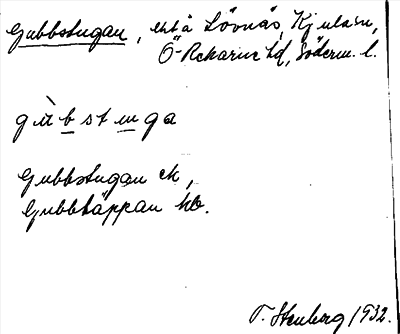 Gubbstugan, ext å Lövnäs, Kjulasn,
Ö-Rekarne hd, Söderm. l.
gùbstuga
Gubbstugan ek,
Gubbtäppan
T. Stenberg 1932.